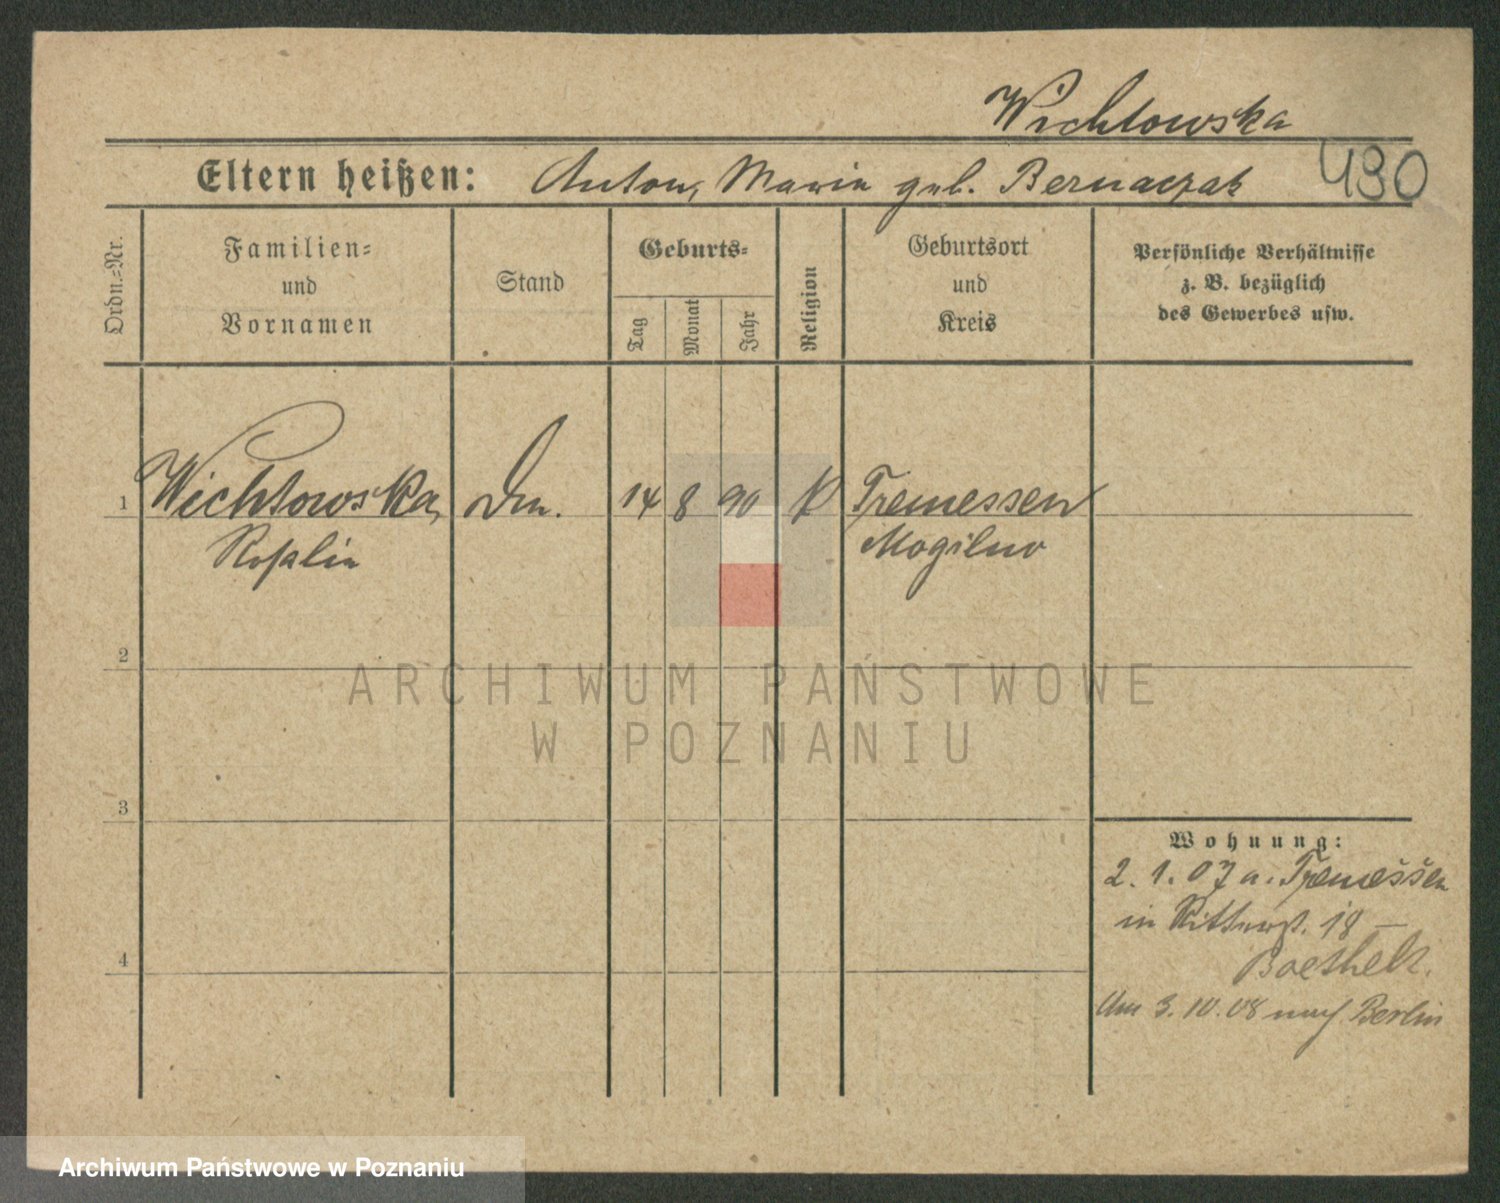 Wichtowska
Eltern heißen: Anton, Maria geb. Bernaczak 430
Ordn.=Nr.
Familien=
und
Vornamen
Stand
Geburts=
Tag
Monat
Jahr
Religion
Geburtsort
und
Kreis
Persönliche Verhältnisse
z. B. bezüglich
des Gewerbes usw.
1 Wichtowska, Dm. 14 8 90 K Tremessen
Rosalie Mogilno
2
ARCHIWUM PAŃSTWOWE
W POZNANIU
3
Wohnung:
2. 1. 07 a. Tremessen
in Ritterst. 18 –
4
Um 3. 10. 08 nach Berlin
Archiwum Państwowe w Poznaniu